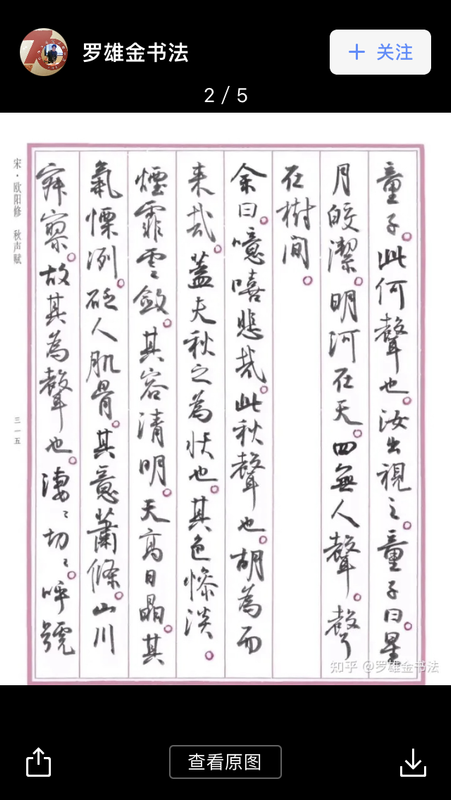 罗雄金书法
+ 关注
2 / 5
童子。此何聲也。汝出視之。童子曰星
月皎潔。明河在天。四無人聲。聲
在樹間。
余曰。噫嘻悲哉。此秋聲也。胡為而
来哉。蓋夫秋之為狀也。其色慘淡。
煙霏雲斂。其容清明。天高日晶。其
氣慄冽。砭人肌骨。其意蕭條。山川
寂寥。故其為聲也。淒〻切〻。呼號
宋·欧阳修 秋声赋
三一五
知乎 @罗雄金书法
查看原图